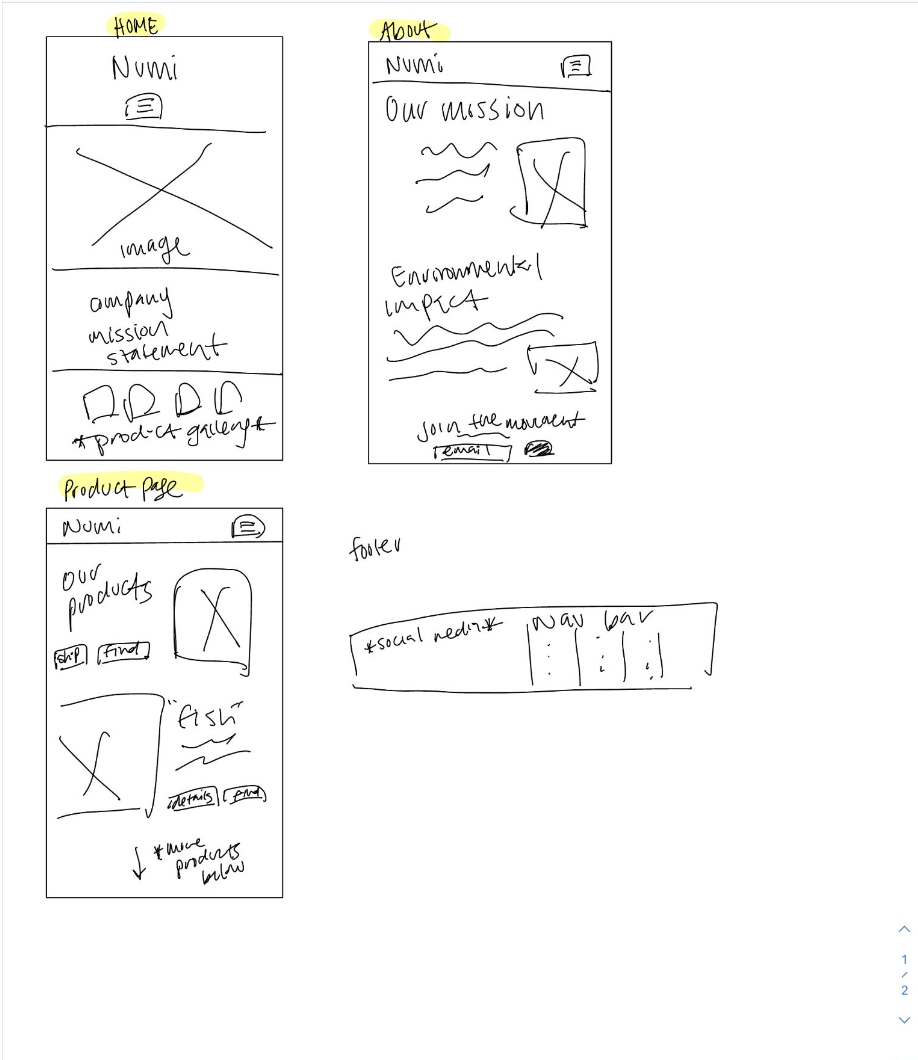 HOME
Numi
image
company
mission
statement
*product gallery*
About
Numi
Our mission
Environmental
impact
Join the movement
email
Product page
Numi
Our
products
ship find
"fish"
details find
*more
products
below
footer
*social media* Nav bar
1
/
2